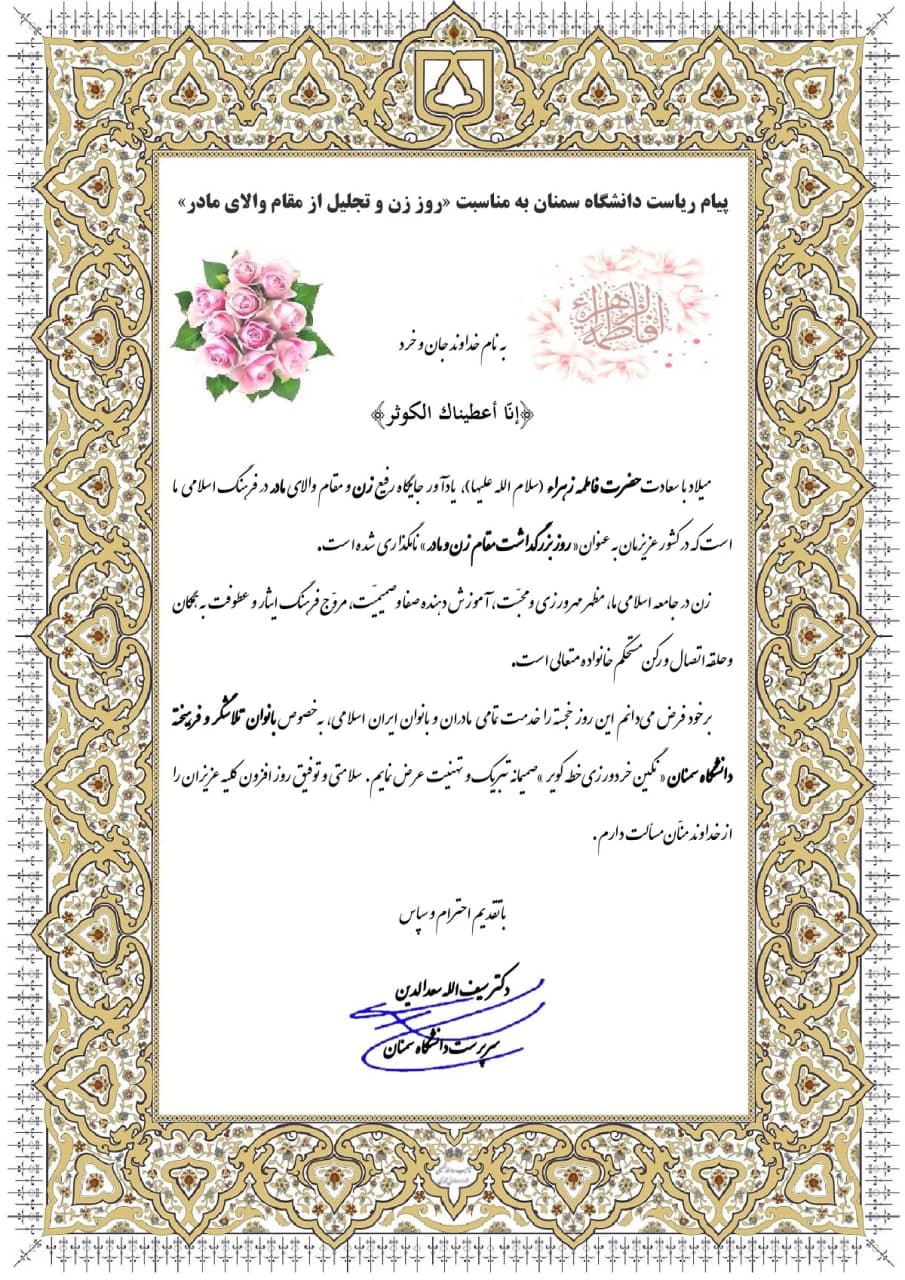 پیام ریاست دانشگاه سمنان به مناسبت «روز زن و تجلیل از مقام والای مادر»
فاطمة الزهراء
به نام خداوند جان و خرد
﴿إنّا أعطیناك الکوثر﴾
میلاد با سعادت حضرت فاطمه زهراء (سلام الله علیها)، یادآور جایگاه رفیع زن و مقام والای مادر در فرهنگ اسلامی ما
است که در کشور عزیزمان به عنوان «روز بزرگداشت مقام زن و مادر» نامگذاری شده است.
زن در جامعه اسلامی ما، مظهر مهرورزی و محبّت، آموزش دهنده صفا و صمیمیّت، مروّج فرهنگ ایثار و عطوفت به همگان
و حلقه اتصال و رکن مستحکم خانواده متعالی است.
بر خود فرض می‌دانم این روز خجسته را خدمت تمامی مادران و بانوان ایران اسلامی، به خصوص بانوان تلاشگر و فریخته
دانشگاه سمنان «نگین خردورزی خطه کویر» صمیمانه تبریک و تهنیت عرض نمایم. سلامتی و توفیق روز افزون کلیه عزیزان را
از خداوند منّان مسألت دارم.
با تقدیم احترام و سپاس
دکتر سیف الله سعدالدین
سرپرست دانشگاه سمنان